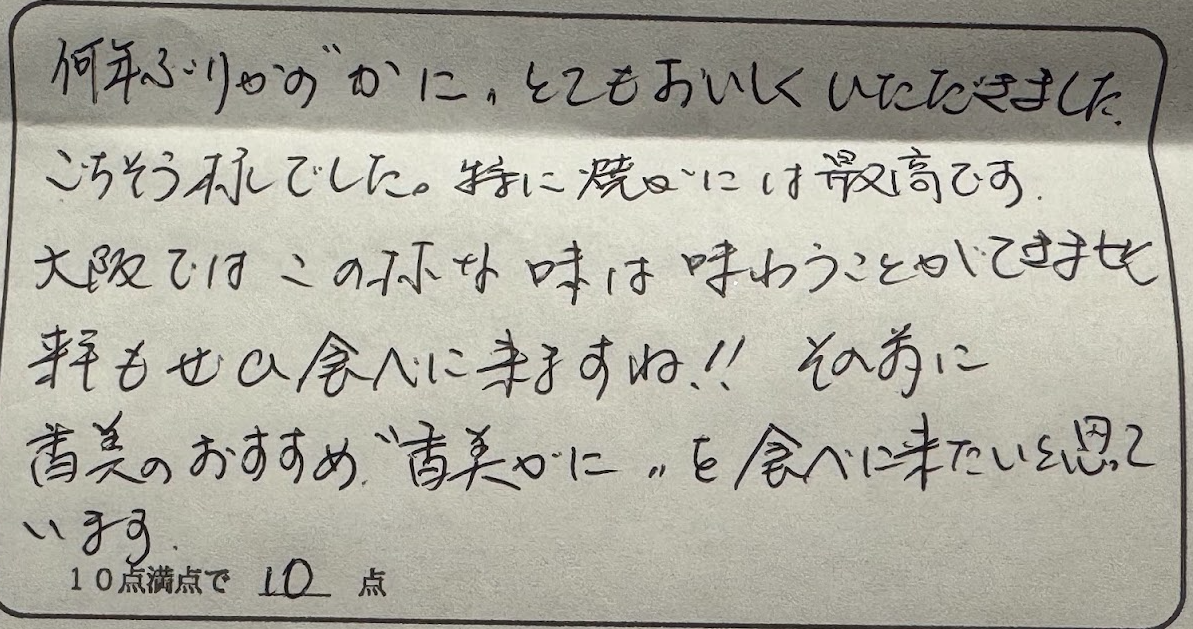 何年ぶりかの〝かに〟とてもおいしくいただきました。
ごちそう様でした。特に焼がには最高です。
大阪ではこの様な味は味わうことができません
来年もぜひ食べに来ますね!! その前に
香美のおすすめ〝香美がに〟を食べに来たいと思って
います。
10点満点で 10 点